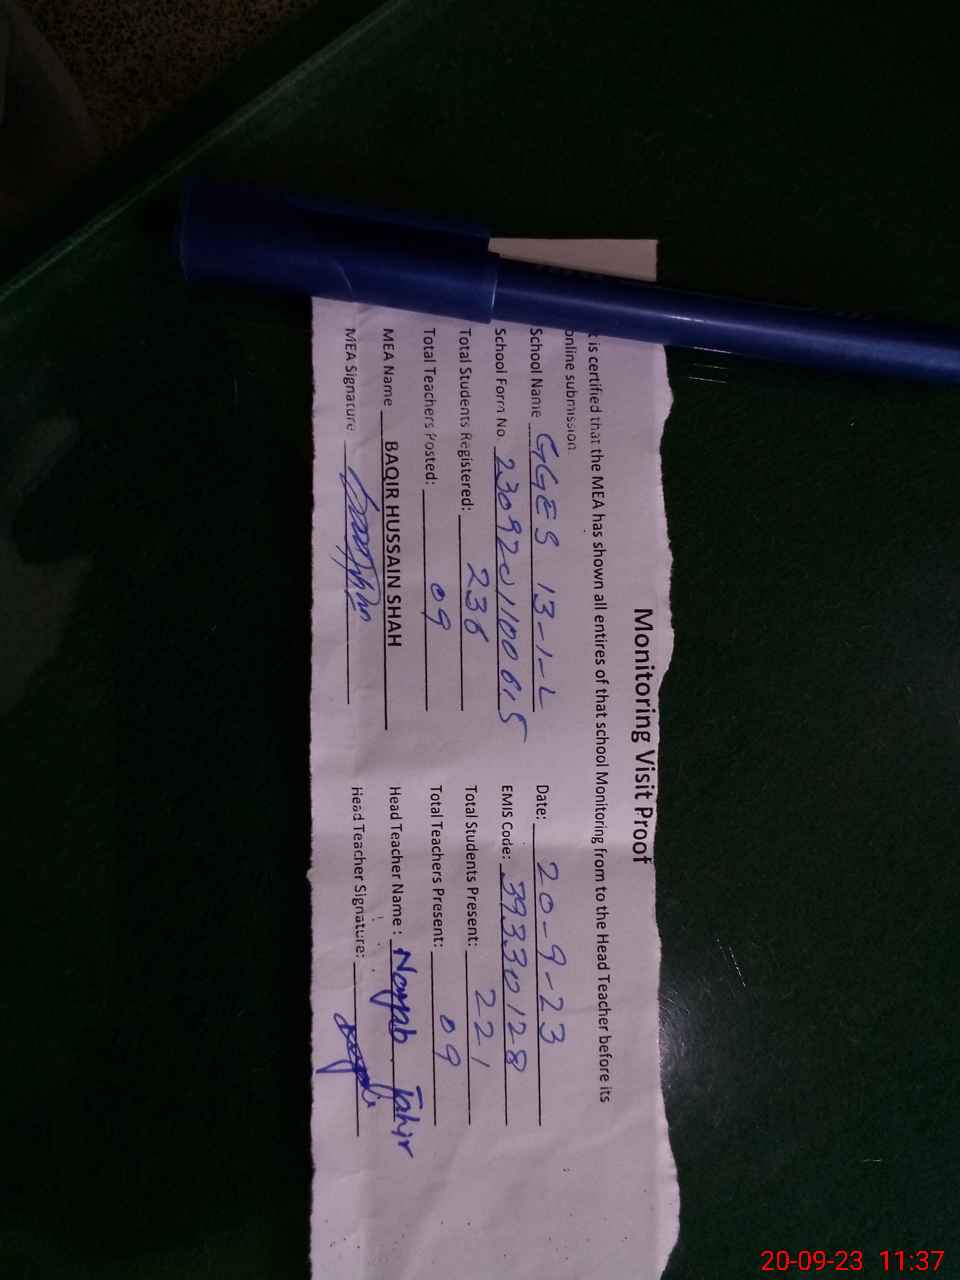 Monitoring Visit Proof
t is certified that the MEA has shown all entires of that school Monitoring from to the Head Teacher before its
online submission.
School Name GGES 13-1-L Date: 20-9-23
School Form No. EMIS Code: 39330128
Total Students Registered: 236 Total Students Present: 221
Total Teachers Posted: 09 Total Teachers Present: 09
MEA Name BAQIR HUSSAIN SHAH Head Teacher Name : Nayab Tahir
MEA Signature Head Teacher Signature:
20-09-23 11:37